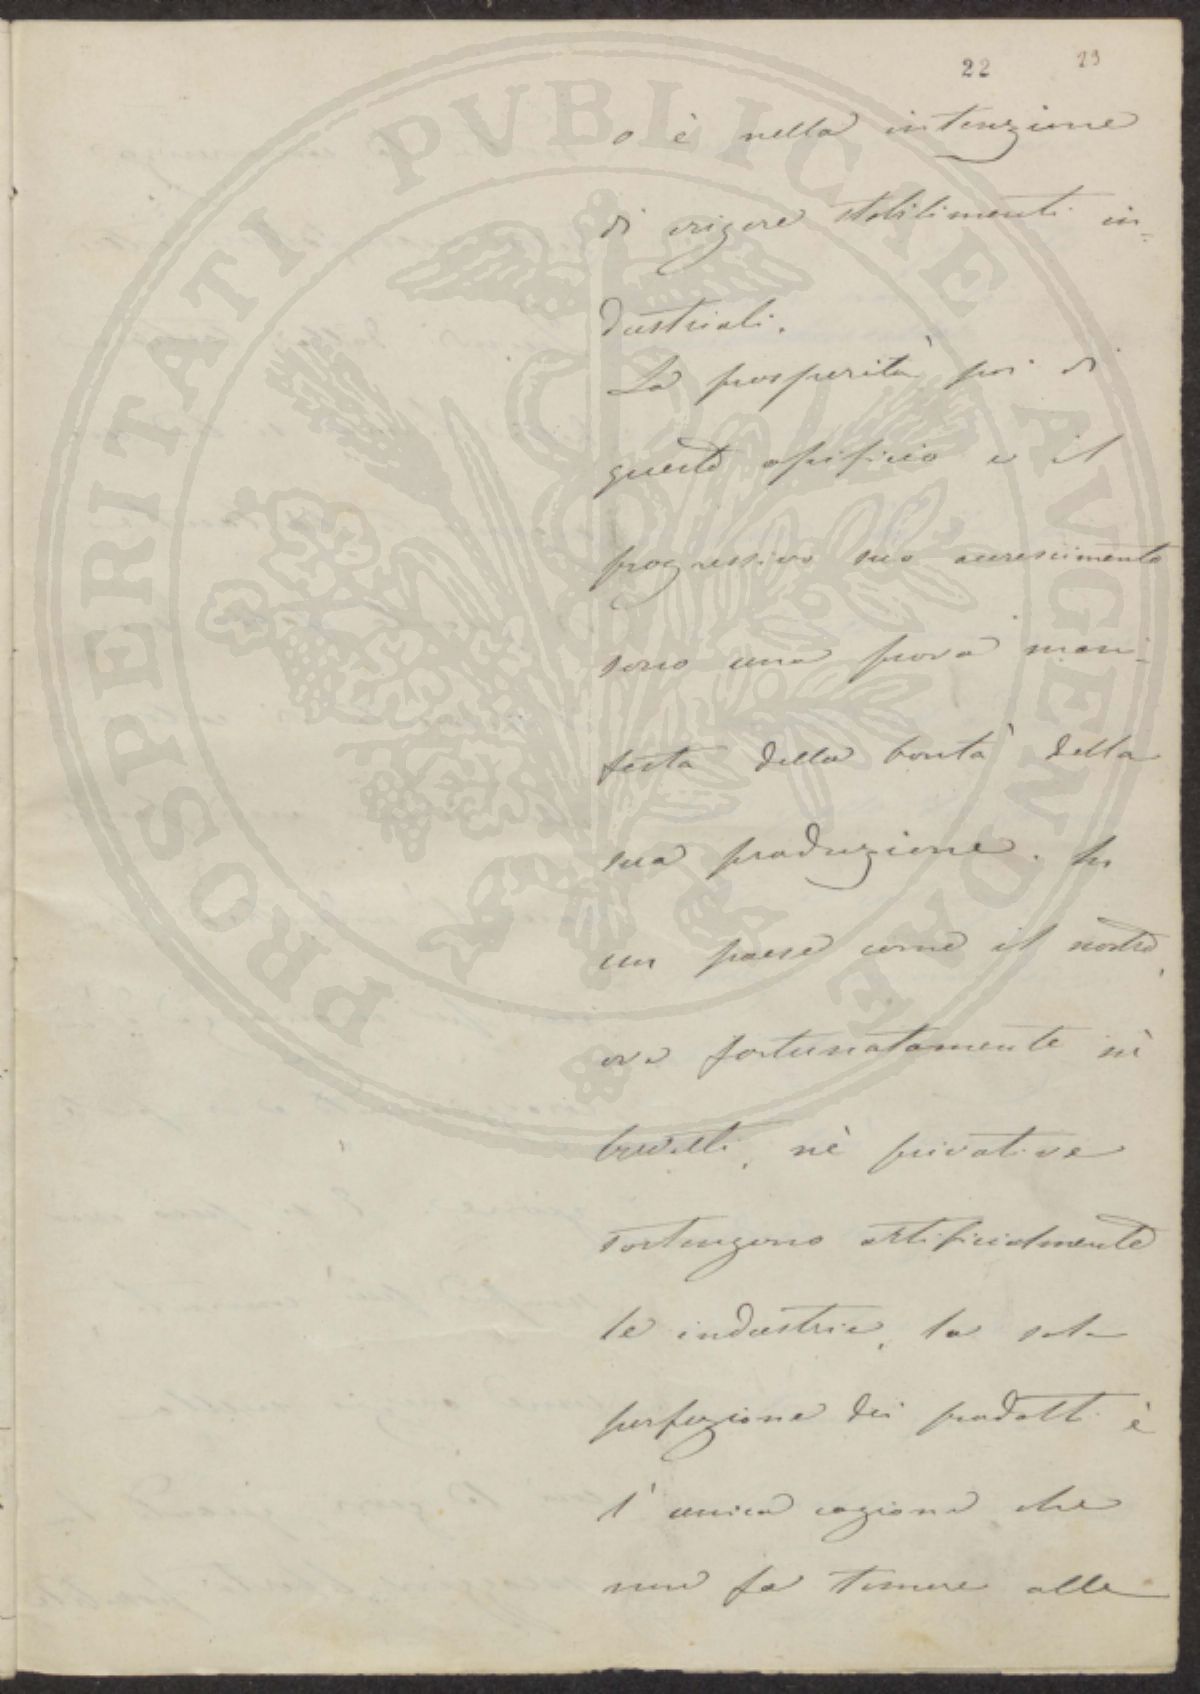 22 23
o è nella intenzione
di erigere stabilimenti in=
dustriali.
La prosperità poi di
questo opificio e il
progressivo suo accrescimento
sono una prova mani-
festa della bontà della
sua produzione. In
un paese come il nostro,
ove fortunatamente nè
brevetti, nè privative
sostengono artificialmente
le industrie, la sola
perfezione dei prodotti è
l'unica cagione che
non fa temere alle
PROSPERITATI PVBLICAE AVGENDAE